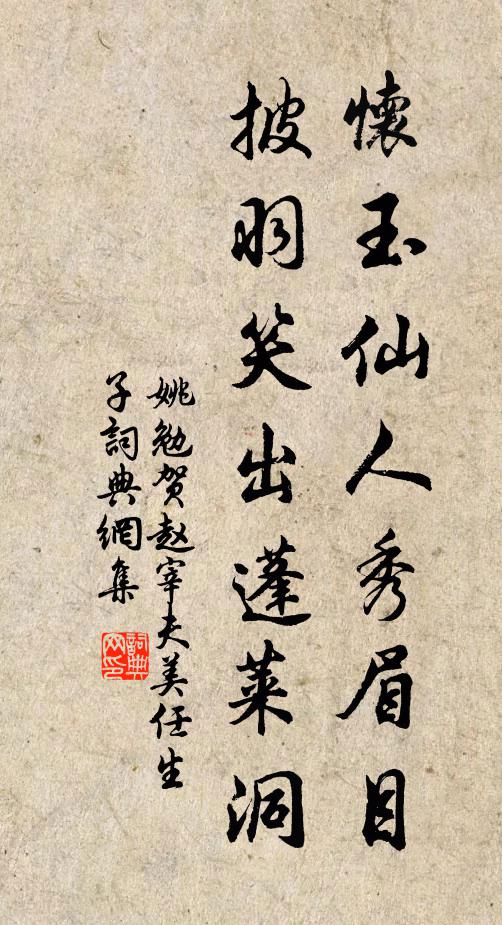 懷玉仙人秀眉目
披羽笑出蓬萊洞
姚勉贺赵宰夫美任生
子詞典網集
詞典网印